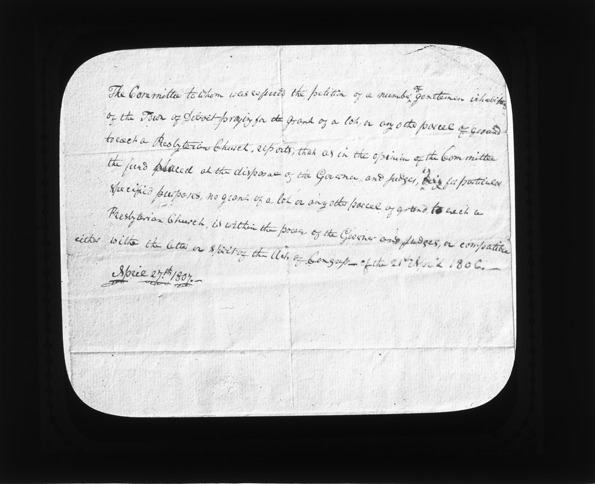 The Committee to whom was referred the petition of a number of gentlemen inhabitants
of the Town of Detroit praying for the grant of a lot, or any other parcel of ground
to erect a Presbyterian Church, reports, that as in the opinion of the Committee
the fund placed at the disposal of the Governor and judges, being for particular
specified purposes, no grant of a lot or any other parcel of ground to erect a
Presbyterian Church, is within the power of the Governor and Judges, or compatible
either with the letter or spirit of the Act of Congress of the 21st April 1806.
April 27th 1807.